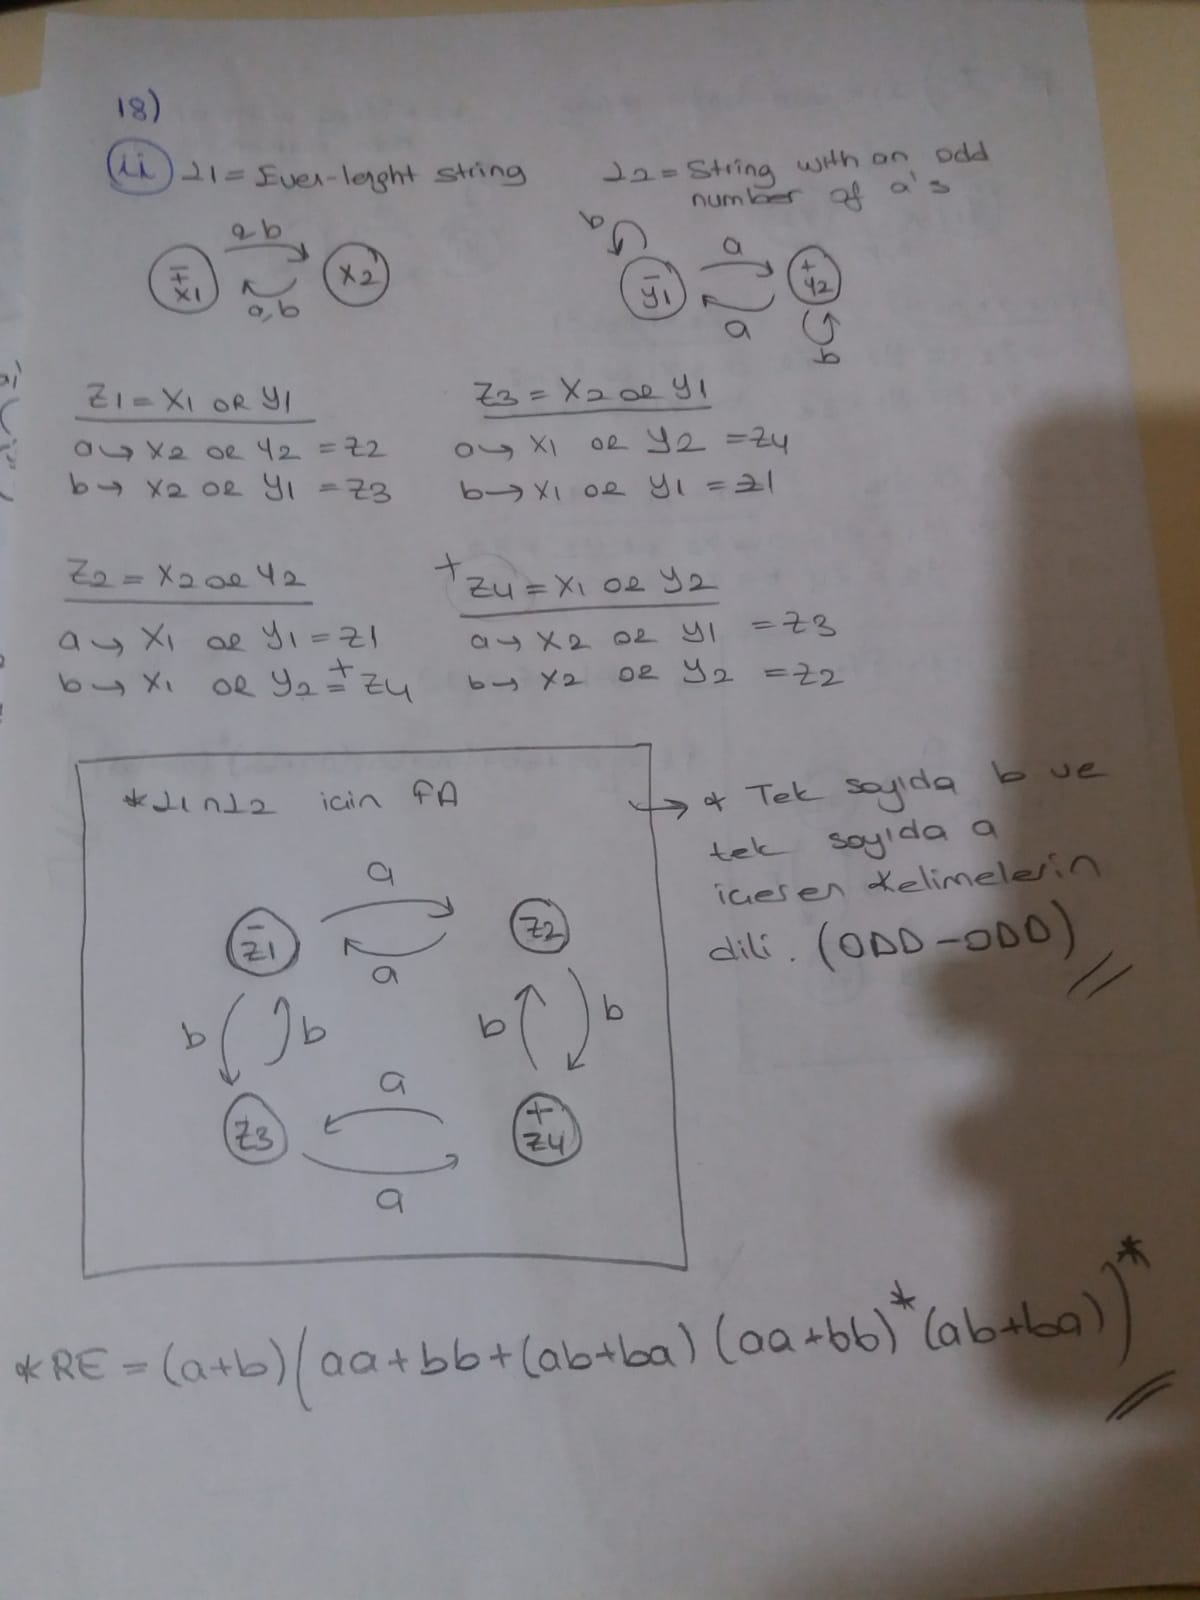 18)
ii L1 = Even-lenght string
L2 = String with an odd
number of a's
a b
-+ x1
x2
a,b
b
a
- y1
+ y2
a
b
Z1 = X1 OR Y1
a → X2 OR Y2 = Z2
b → X2 OR Y1 = Z3
Z3 = X2 OR Y1
a → X1 OR Y2 = Z4
b → X1 OR Y1 = Z1
Z2 = X2 OR Y2
a → X1 OR Y1 = Z1
b → X1 OR Y2 = +Z4
+ Z4 = X1 OR Y2
a → X2 OR Y1 = Z3
b → X2 OR Y2 = Z2
* L1 ∩ L2 icin FA
a
- Z1
Z2
a
b b
b b
a
Z3
+ Z4
a
→ * Tek sayıda b ve
tek sayıda a
iceren kelimelerin
dili. (ODD-ODD) //
* RE = (a+b)(aa+bb+(ab+ba)(aa+bb)*(ab+ba))* //